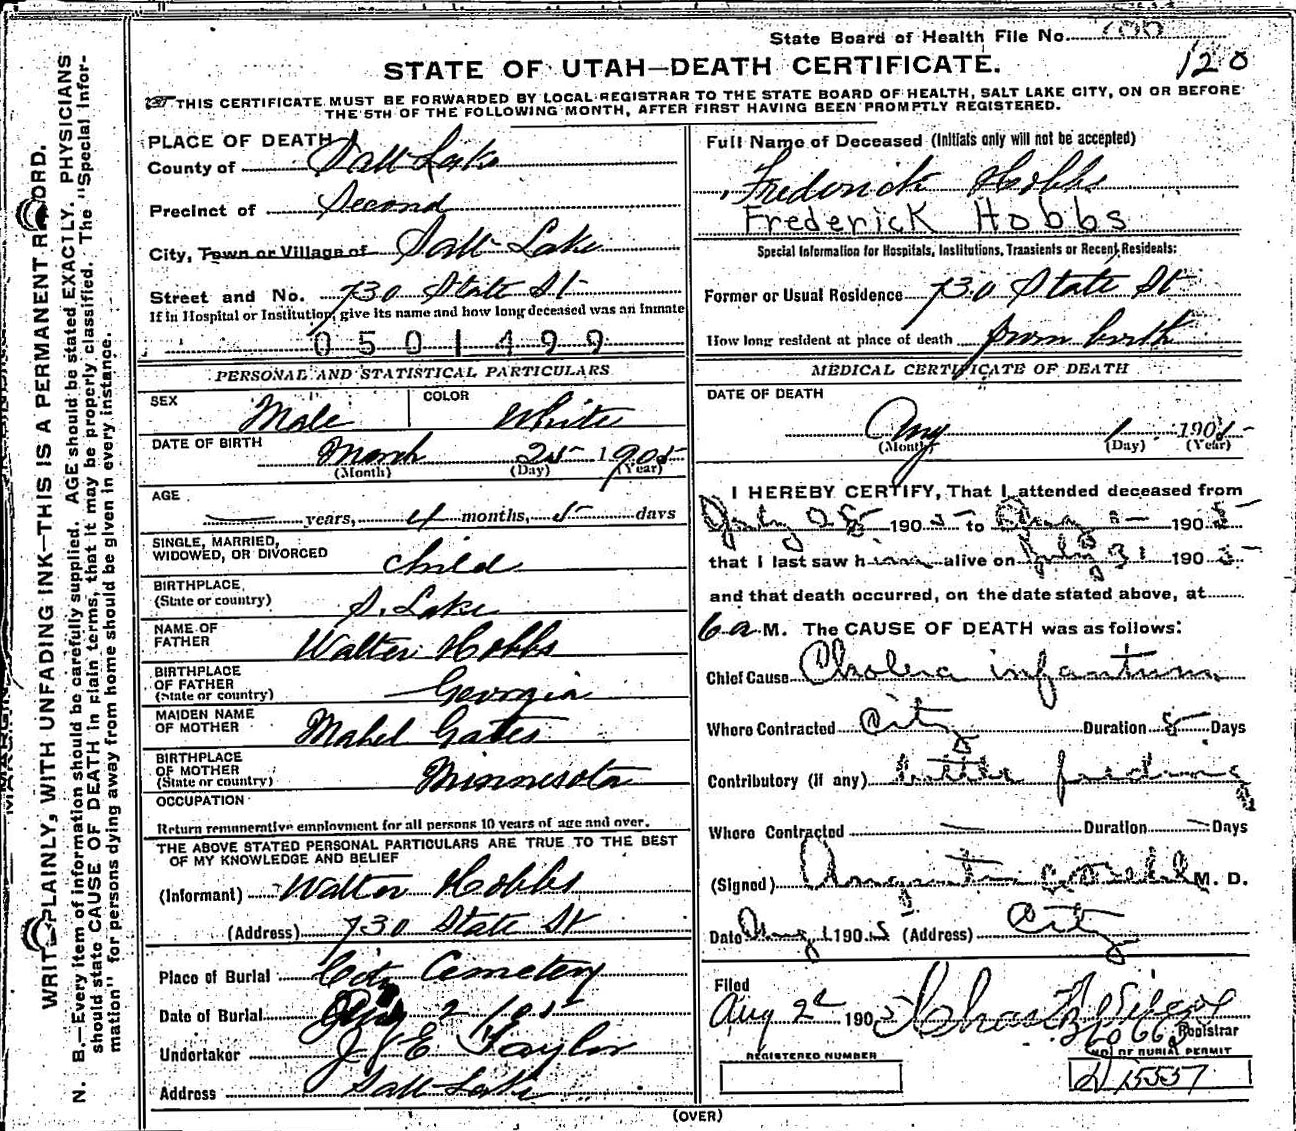 State Board of Health File No. 700
128
STATE OF UTAH—DEATH CERTIFICATE.
THIS CERTIFICATE MUST BE FORWARDED BY LOCAL REGISTRAR TO THE STATE BOARD OF HEALTH, SALT LAKE CITY, ON OR BEFORE
THE 5TH OF THE FOLLOWING MONTH, AFTER FIRST HAVING BEEN PROMPTLY REGISTERED.
WRITE PLAINLY, WITH UNFADING INK—THIS IS A PERMANENT RECORD.
N. B.—Every item of information should be carefully supplied. AGE should be stated EXACTLY. PHYSICIANS
should state CAUSE OF DEATH in plain terms, that it may be properly classified. The "Special Infor-
mation" for persons dying away from home should be given in every instance.
PLACE OF DEATH
County of Salt Lake
Precinct of Second
City, Town or Village of Salt Lake
Street and No. 730 State St
If in Hospital or Institution, give its name and how long deceased was an inmate
0501499
PERSONAL AND STATISTICAL PARTICULARS
SEX Male COLOR White
DATE OF BIRTH March 25 1905
(Month) (Day) (Year)
AGE
— years, 4 months, 5 days
SINGLE, MARRIED,
WIDOWED, OR DIVORCED Child
BIRTHPLACE
(State or country) S. Lake
NAME OF
FATHER Walter Hobbs
BIRTHPLACE
OF FATHER
(State or country) Georgia
MAIDEN NAME
OF MOTHER Mabel Gates
BIRTHPLACE
OF MOTHER
(State or country) Minnesota
OCCUPATION
Return remunerative employment for all persons 10 years of age and over.
THE ABOVE STATED PERSONAL PARTICULARS ARE TRUE TO THE BEST
OF MY KNOWLEDGE AND BELIEF
(Informant) Walter Hobbs
(Address) 730 State St
Place of Burial City Cemetery
Date of Burial 2 1905
Undertaker J E Taylor
Address Salt Lake
Full Name of Deceased (Initials only will not be accepted)
Frederick Hobbs
Frederick Hobbs
Special Information for Hospitals, Institutions, Transients or Recent Residents:
Former or Usual Residence 730 State St
How long resident at place of death from birth
MEDICAL CERTIFICATE OF DEATH
DATE OF DEATH
Aug 1 1905
(Month) (Day) (Year)
I HEREBY CERTIFY, That I attended deceased from
July 28 1905 to Aug 1905
that I last saw him alive on July 31 1905
and that death occurred, on the date stated above, at
6 a M. The CAUSE OF DEATH was as follows:
Chief Cause Cholera infantum
Where Contracted City Duration 5 Days
Contributory (if any) bottle feeding
Where Contracted — Duration — Days
(Signed) M. D.
Date Aug 1 1905 (Address) City
Filed
Aug 2d 1905 Chas
Registrar
REGISTERED NUMBER
NO. OF BURIAL PERMIT
15557
(OVER)